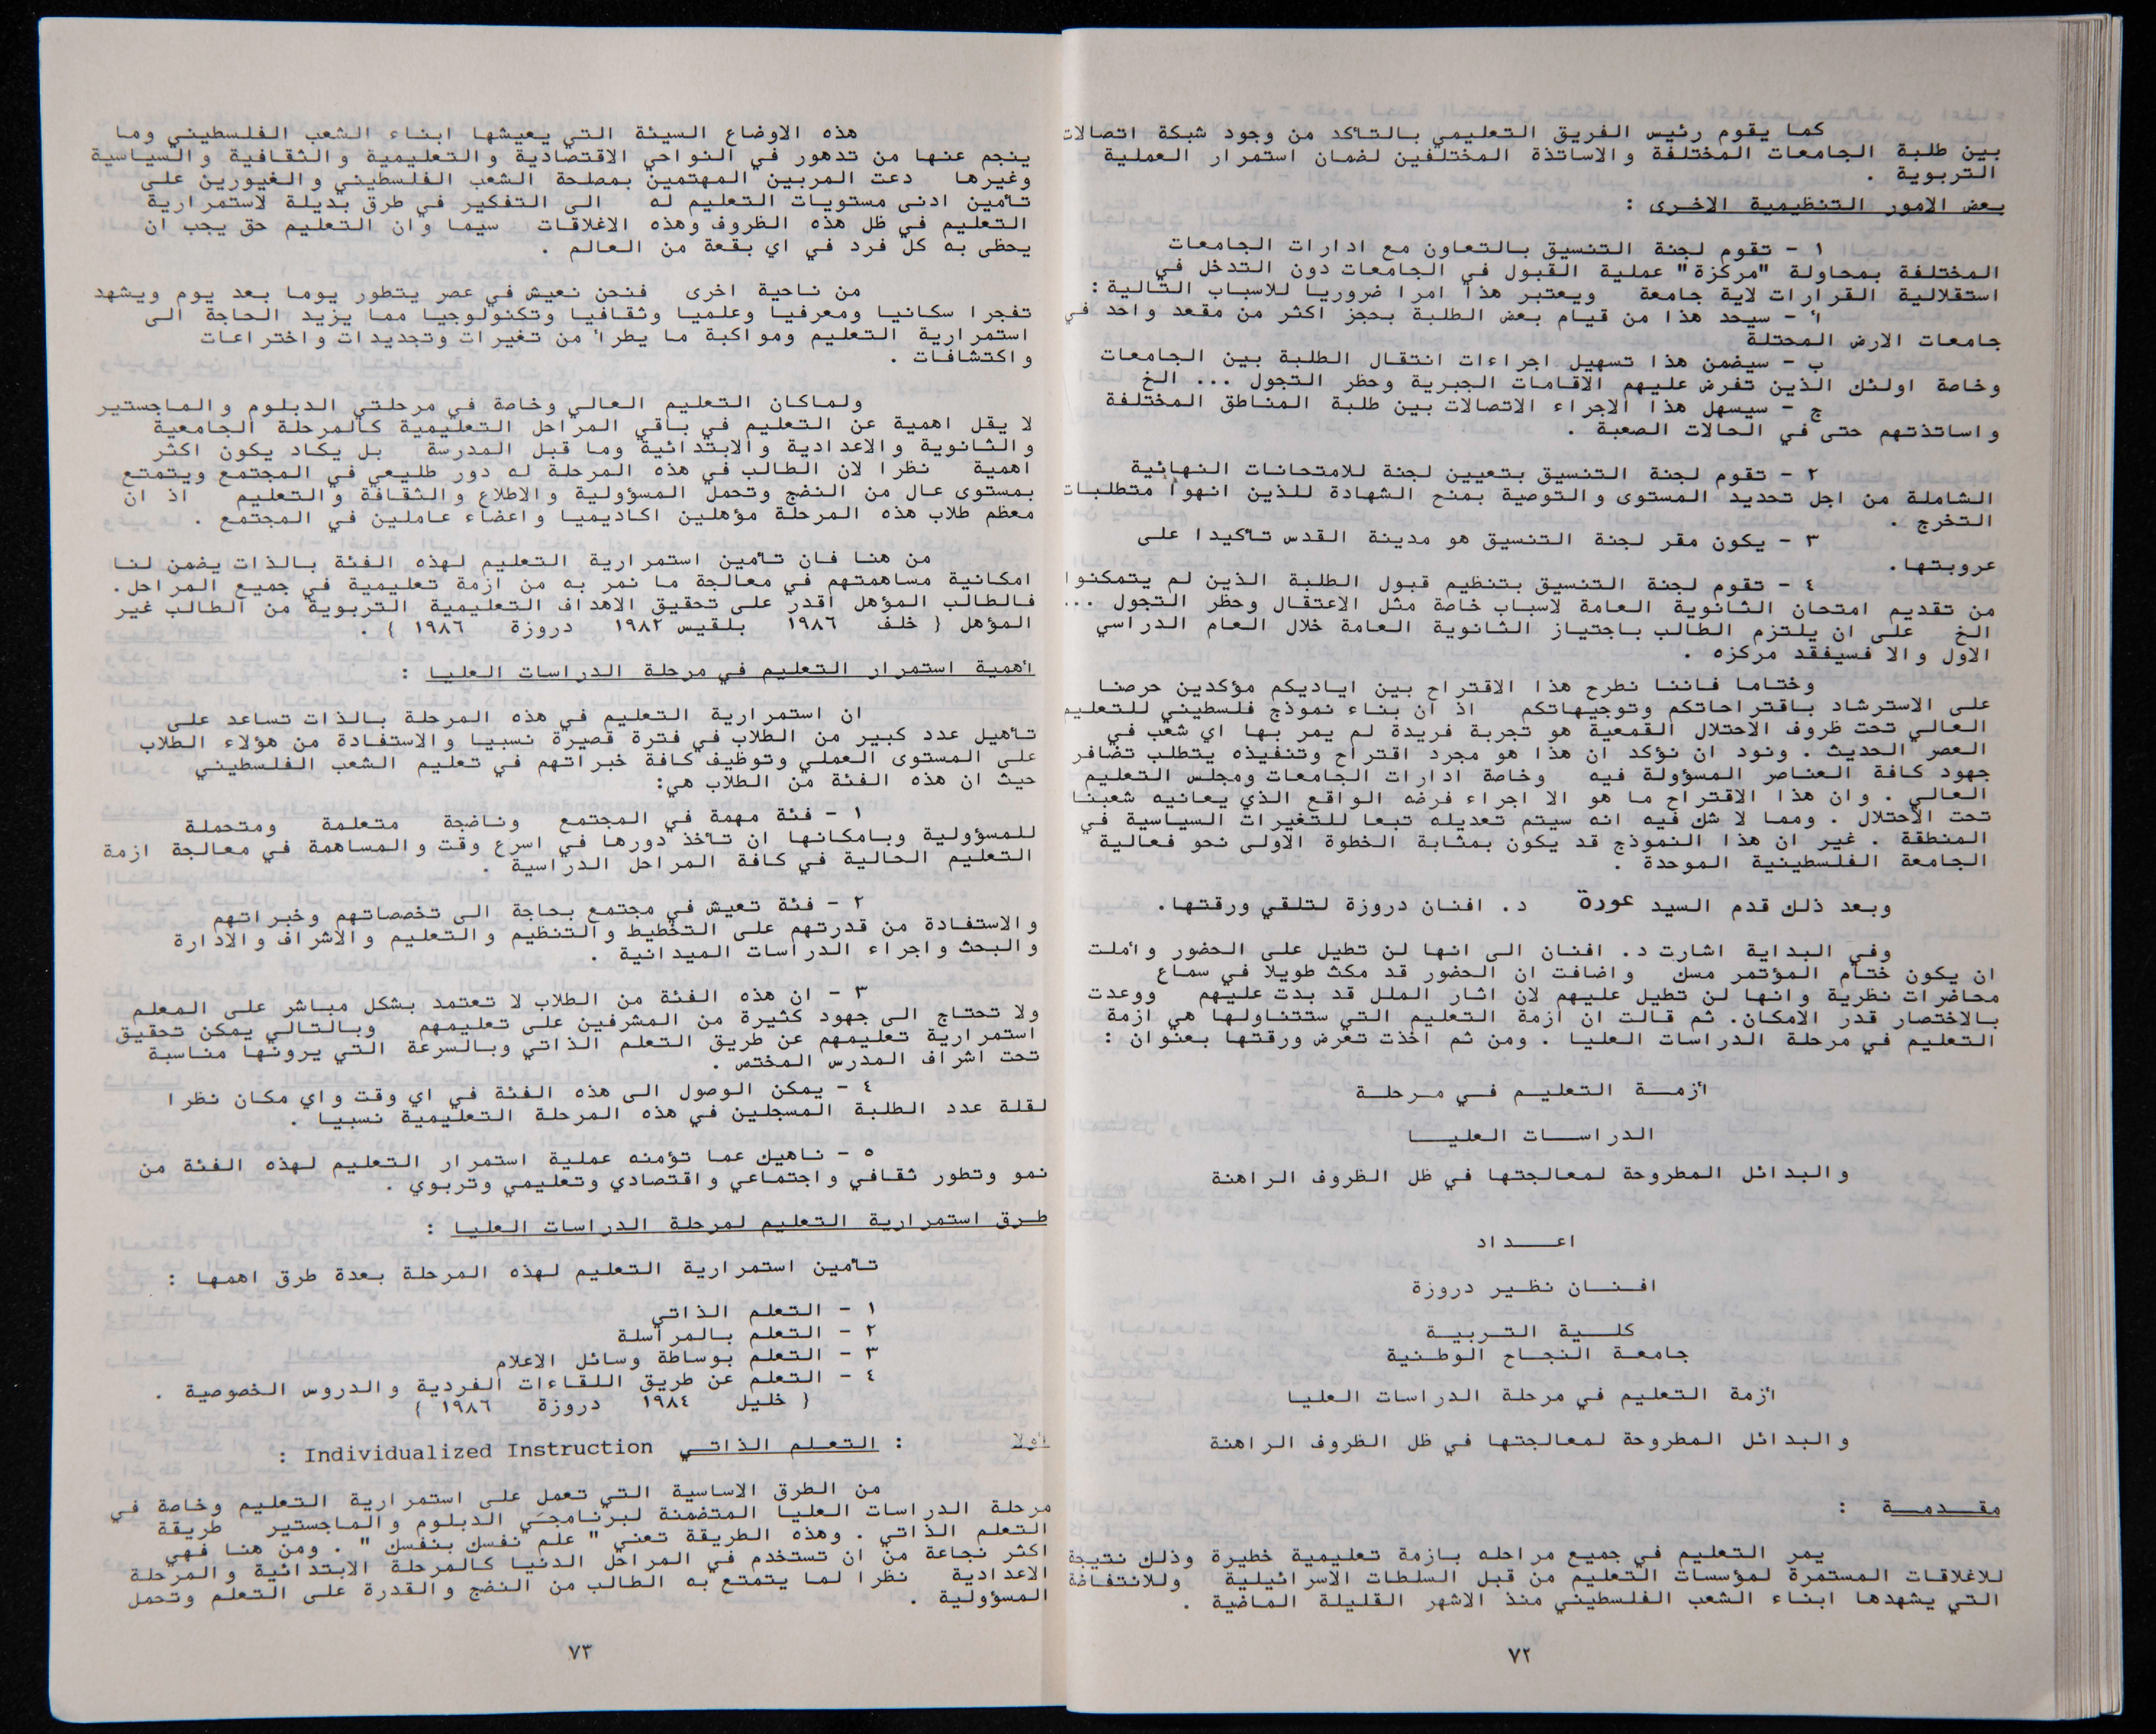 كما يقوم رئيس الفريق التعليمي بالتأكد من وجود شبكة اتصالات
بين طلبة الجامعات المختلفة والاساتذة المختلفين لضمان استمرار العملية
التربوية .
بعض الامور التنظيمية الاخرى :
١ - تقوم لجنة التنسيق بالتعاون مع ادارات الجامعات
المختلفة بمحاولة "مركزة" عملية القبول في الجامعات دون التدخل في
استقلالية القرارات لاية جامعة ويعتبر هذا امرا ضروريا للاسباب التالية:
أ - سيحد هذا من قيام بعض الطلبة بحجز اكثر من مقعد واحد في
جامعات الارض المحتلة
ب - سيضمن هذا تسهيل اجراءات انتقال الطلبة بين الجامعات
وخاصة اولئك الذين تفرض عليهم الاقامات الجبرية وحظر التجول ... الخ
ج - سيسهل هذا الاجراء الاتصالات بين طلبة المناطق المختلفة
واساتذتهم حتى في الحالات الصعبة .
٢ - تقوم لجنة التنسيق بتعيين لجنة للامتحانات النهائية
الشاملة من اجل تحديد المستوى والتوصية بمنح الشهادة للذين انهوا متطلبات
التخرج .
٣ - يكون مقر لجنة التنسيق هو مدينة القدس تأكيدا على
عروبتها.
٤ - تقوم لجنة التنسيق بتنظيم قبول الطلبة الذين لم يتمكنوا
من تقديم امتحان الثانوية العامة لاسباب خاصة مثل الاعتقال وحظر التجول ...
الخ على ان يلتزم الطالب باجتياز الثانوية العامة خلال العام الدراسي
الاول والا فسيفقد مركزه .
وختاما فاننا نطرح هذا الاقتراح بين اياديكم مؤكدين حرصنا
على الاسترشاد باقتراحاتكم وتوجيهاتكم اذ ان بناء نموذج فلسطيني للتعليم
العالي تحت ظروف الاحتلال القمعية هو تجربة فريدة لم يمر بها اي شعب في
العصر الحديث . ونود ان نؤكد ان هذا هو مجرد اقتراح وتنفيذه يتطلب تضافر
جهود كافة العناصر المسؤولة فيه وخاصة ادارات الجامعات ومجلس التعليم
العالي . وان هذا الاقتراح ما هو الا اجراء فرضه الواقع الذي يعانيه شعبنا
تحت الاحتلال . ومما لا شك فيه انه سيتم تعديله تبعا للتغيرات السياسية في
المنطقة . غير ان هذا النموذج قد يكون بمثابة الخطوة الاولى نحو فعالية
الجامعة الفلسطينية الموحدة .
وبعد ذلك قدم السيد عورة د. افنان دروزة لتلقي ورقتها.
وفي البداية اشارت د. افنان الى انها لن تطيل على الحضور وأملت
ان يكون ختام المؤتمر مسك واضافت ان الحضور قد مكث طويلا في سماع
محاضرات نظرية وانها لن تطيل عليهم لان اثار الملل قد بدت عليهم ووعدت
بالاختصار قدر الامكان. ثم قالت ان ازمة التعليم التي ستتناولها هي ازمة
التعليم في مرحلة الدراسات العليا . ومن ثم اخذت تعرض ورقتها بعنوان :
أزمــة التعليـم فـي مـرحلـة
الدراســات العليــا
والبدائل المطروحة لمعالجتها في ظل الظروف الراهنة
اعــداد
افنــان نظيـر دروزة
كلــية التـربيــة
جامعـة النجـاح الوطـنية
أزمة التعليم في مرحلة الدراسات العليا
والبدائل المطروحة لمعالجتها في ظل الظروف الراهنة
مقــدمــة :
يمر التعليم في جميع مراحله بازمة تعليمية خطيرة وذلك نتيجة
للاغلاقات المستمرة لمؤسسات التعليم من قبل السلطات الاسرائيلية وللانتفاضة
التي يشهدها ابناء الشعب الفلسطيني منذ الاشهر القليلة الماضية .
٧٢
هذه الاوضاع السيئة التي يعيشها ابناء الشعب الفلسطيني وما
ينجم عنها من تدهور في النواحي الاقتصادية والتعليمية والثقافية والسياسية
وغيرها دعت المربين المهتمين بمصلحة الشعب الفلسطيني والغيورين على
تأمين ادنى مستويات التعليم له الى التفكير في طرق بديلة لاستمرارية
التعليم في ظل هذه الظروف وهذه الاغلاقات سيما وان التعليم حق يجب ان
يحظى به كل فرد في اي بقعة من العالم .
من ناحية اخرى فنحن نعيش في عصر يتطور يوما بعد يوم ويشهد
تفجرا سكانيا ومعرفيا وعلميا وثقافيا وتكنولوجيا مما يزيد الحاجة الى
استمرارية التعليم ومواكبة ما يطرأ من تغيرات وتجديدات واختراعات
واكتشافات .
ولماكان التعليم العالي وخاصة في مرحلتي الدبلوم والماجستير
لا يقل اهمية عن التعليم في باقي المراحل التعليمية كالمرحلة الجامعية
والثانوية والاعدادية والابتدائية وما قبل المدرسة بل يكاد يكون اكثر
اهمية نظرا لان الطالب في هذه المرحلة له دور طليعي في المجتمع ويتمتع
بمستوى عال من النضج وتحمل المسؤولية والاطلاع والثقافة والتعليم اذ ان
معظم طلاب هذه المرحلة مؤهلين اكاديميا واعضاء عاملين في المجتمع .
من هنا فان تأمين استمرارية التعليم لهذه الفئة بالذات يضمن لنا
امكانية مساهمتهم في معالجة ما نمر به من ازمة تعليمية في جميع المراحل.
فالطالب المؤهل اقدر على تحقيق الاهداف التعليمية التربوية من الطالب غير
المؤهل ( خلف ١٩٨٦ بلقيس ١٩٨٢ دروزة ١٩٨٦ ) .
أهمية استمرار التعليم في مرحلة الدراسات العليا :
ان استمرارية التعليم في هذه المرحلة بالذات تساعد على
تأهيل عدد كبير من الطلاب في فترة قصيرة نسبيا والاستفادة من هؤلاء الطلاب
على المستوى العملي وتوظيف كافة خبراتهم في تعليم الشعب الفلسطيني
حيث ان هذه الفئة من الطلاب هي:
١ - فئة مهمة في المجتمع وناضجة متعلمة ومتحملة
للمسؤولية وبامكانها ان تأخذ دورها في اسرع وقت والمساهمة في معالجة ازمة
التعليم الحالية في كافة المراحل الدراسية .
٢ - فئة تعيش في مجتمع بحاجة الى تخصصاتهم وخبراتهم
والاستفادة من قدرتهم على التخطيط والتنظيم والتعليم والاشراف والادارة
والبحث واجراء الدراسات الميدانية .
٣ - ان هذه الفئة من الطلاب لا تعتمد بشكل مباشر على المعلم
ولا تحتاج الى جهود كثيرة من المشرفين على تعليمهم وبالتالي يمكن تحقيق
استمرارية تعليمهم عن طريق التعلم الذاتي وبالسرعة التي يرونها مناسبة
تحت اشراف المدرس المختص .
٤ - يمكن الوصول الى هذه الفئة في اي وقت واي مكان نظرا
لقلة عدد الطلبة المسجلين في هذه المرحلة التعليمية نسبيا .
٥ - ناهيك عما تؤمنه عملية استمرار التعليم لهذه الفئة من
نمو وتطور ثقافي واجتماعي واقتصادي وتعليمي وتربوي .
طرق استمرارية التعليم لمرحلة الدراسات العليا :
تأمين استمرارية التعليم لهذه المرحلة بعدة طرق اهمها :
١ - التعلم الذاتي
٢ - التعلم بالمراسلة
٣ - التعلم بوساطة وسائل الاعلام
٤ - التعلم عن طريق اللقاءات الفردية والدروس الخصوصية .
( خليل ١٩٨٤ دروزة ١٩٨٦ )
أولا : التعلم الذاتي Individualized Instruction :
من الطرق الاساسية التي تعمل على استمرارية التعليم وخاصة في
مرحلة الدراسات العليا المتضمنة لبرنامجي الدبلوم والماجستير طريقة
التعلم الذاتي . وهذه الطريقة تعني " علم نفسك بنفسك " . ومن هنا فهي
اكثر نجاعة من ان تستخدم في المراحل الدنيا كالمرحلة الابتدائية والمرحلة
الاعدادية نظرا لما يتمتع به الطالب من النضج والقدرة على التعلم وتحمل
المسؤولية .
٧٣